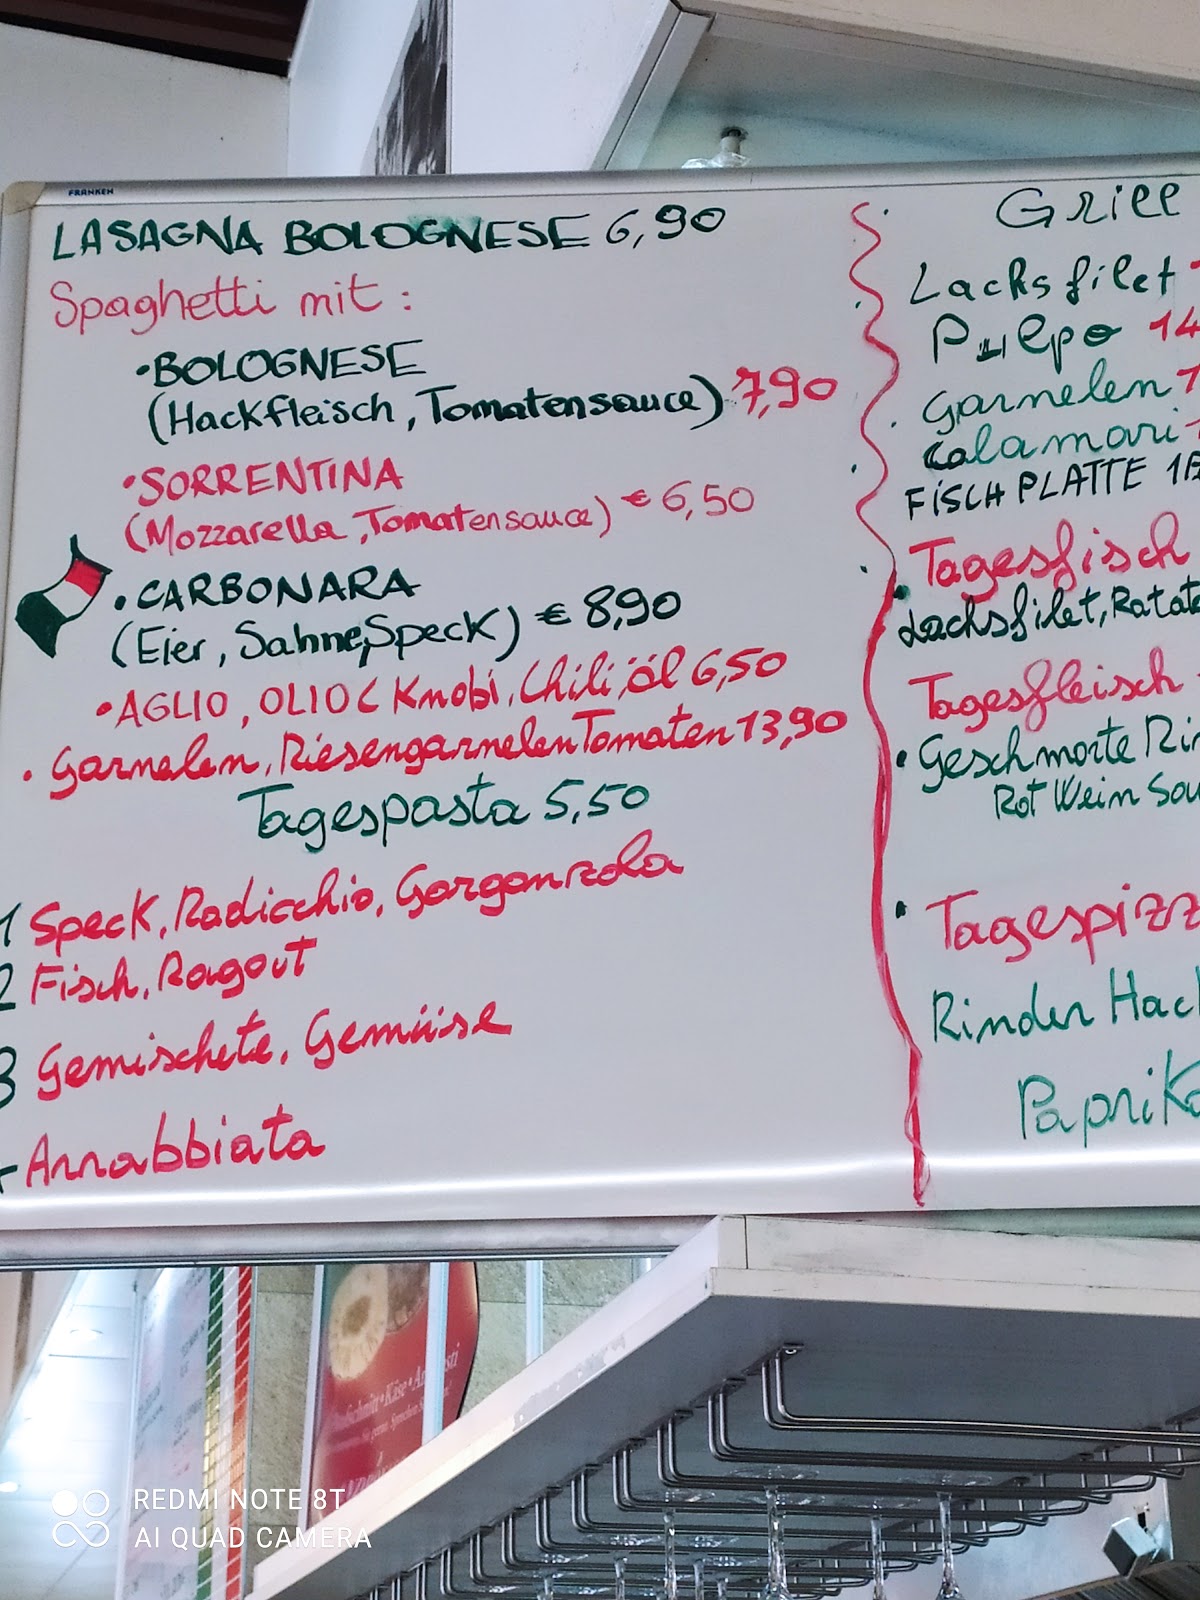 FRANKEN
LASAGNA BOLOGNESE 6,90
Spaghetti mit :
•BOLOGNESE
(Hackfleisch, Tomatensauce) 7,90
•SORRENTINA
(Mozzarella, Tomatensauce) € 6,50
•CARBONARA
(Eier, Sahne, Speck) € 8,90
•AGLIO, OLIO ( Knobi, Chili, öl 6,50
• Garnelen, Riesengarnelen Tomaten 13,90
Tagespasta 5,50
1 Speck, Radicchio, Gorgonzola
2 Fisch, Ragout
3 Gemischete, Gemüise
Arrabbiata
Grill
Lachsfilet
Pulpo 14
Garnelen
Calamari
FISCH PLATTE
Tagesfisch
Lachsfilet, Ratat
Tagesfleisch
• Geschmorte Rin
Rot Wein Sau
• Tagespizz
Rinder Hac
Paprika
REDMI NOTE 8T
AI QUAD CAMERA